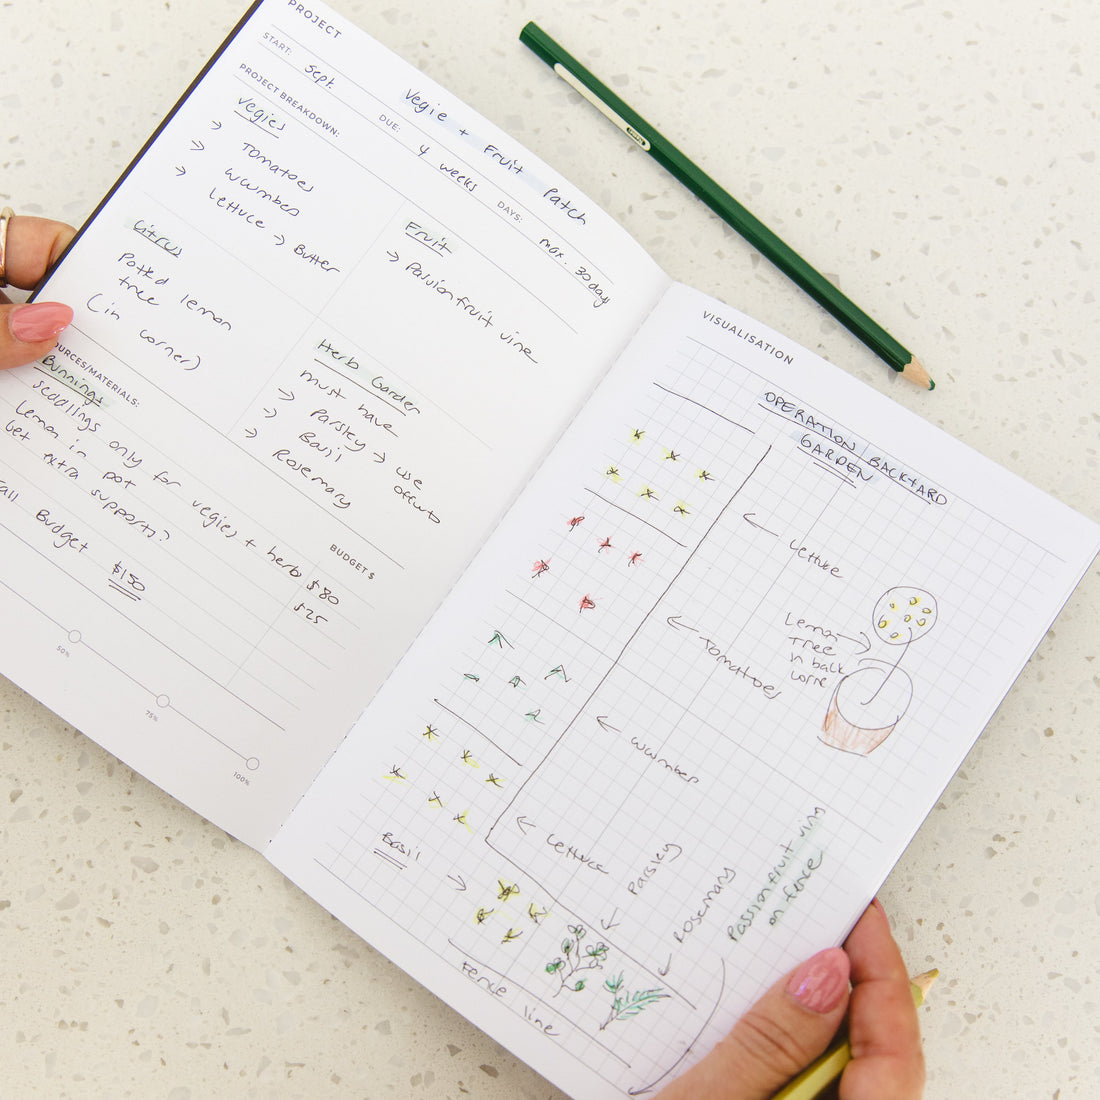 PROJECT
Vegie + Fruit Patch
START:
Sept.
DUE:
4 weeks
DAYS:
max. 30 day
PROJECT BREAKDOWN:
Vegies
→ Tomatoes
→ cucumbers
→ Lettuce → Butter
Fruit
→ Passionfruit vine
Citrus
Potted lemon
tree
(in corner)
Herb Garden
must have
→ Parsley → use
offcuts
→ Basil
→ Rosemary
OURCES/MATERIALS:
BUDGET $
Bunnings
seedlings only for vegies + herbs $80
Lemon in pot $25
extra supports?
Budget $150
50%
75%
100%
VISUALISATION
OPERATION BACKYARD
GARDEN
← Lettuce
Lemon
Tree
in back
← Tomatoes
← cucumber
← Lettuce
Parsley
Rosemary
Passionfruit vine
on fence
Basil
→
Fence line